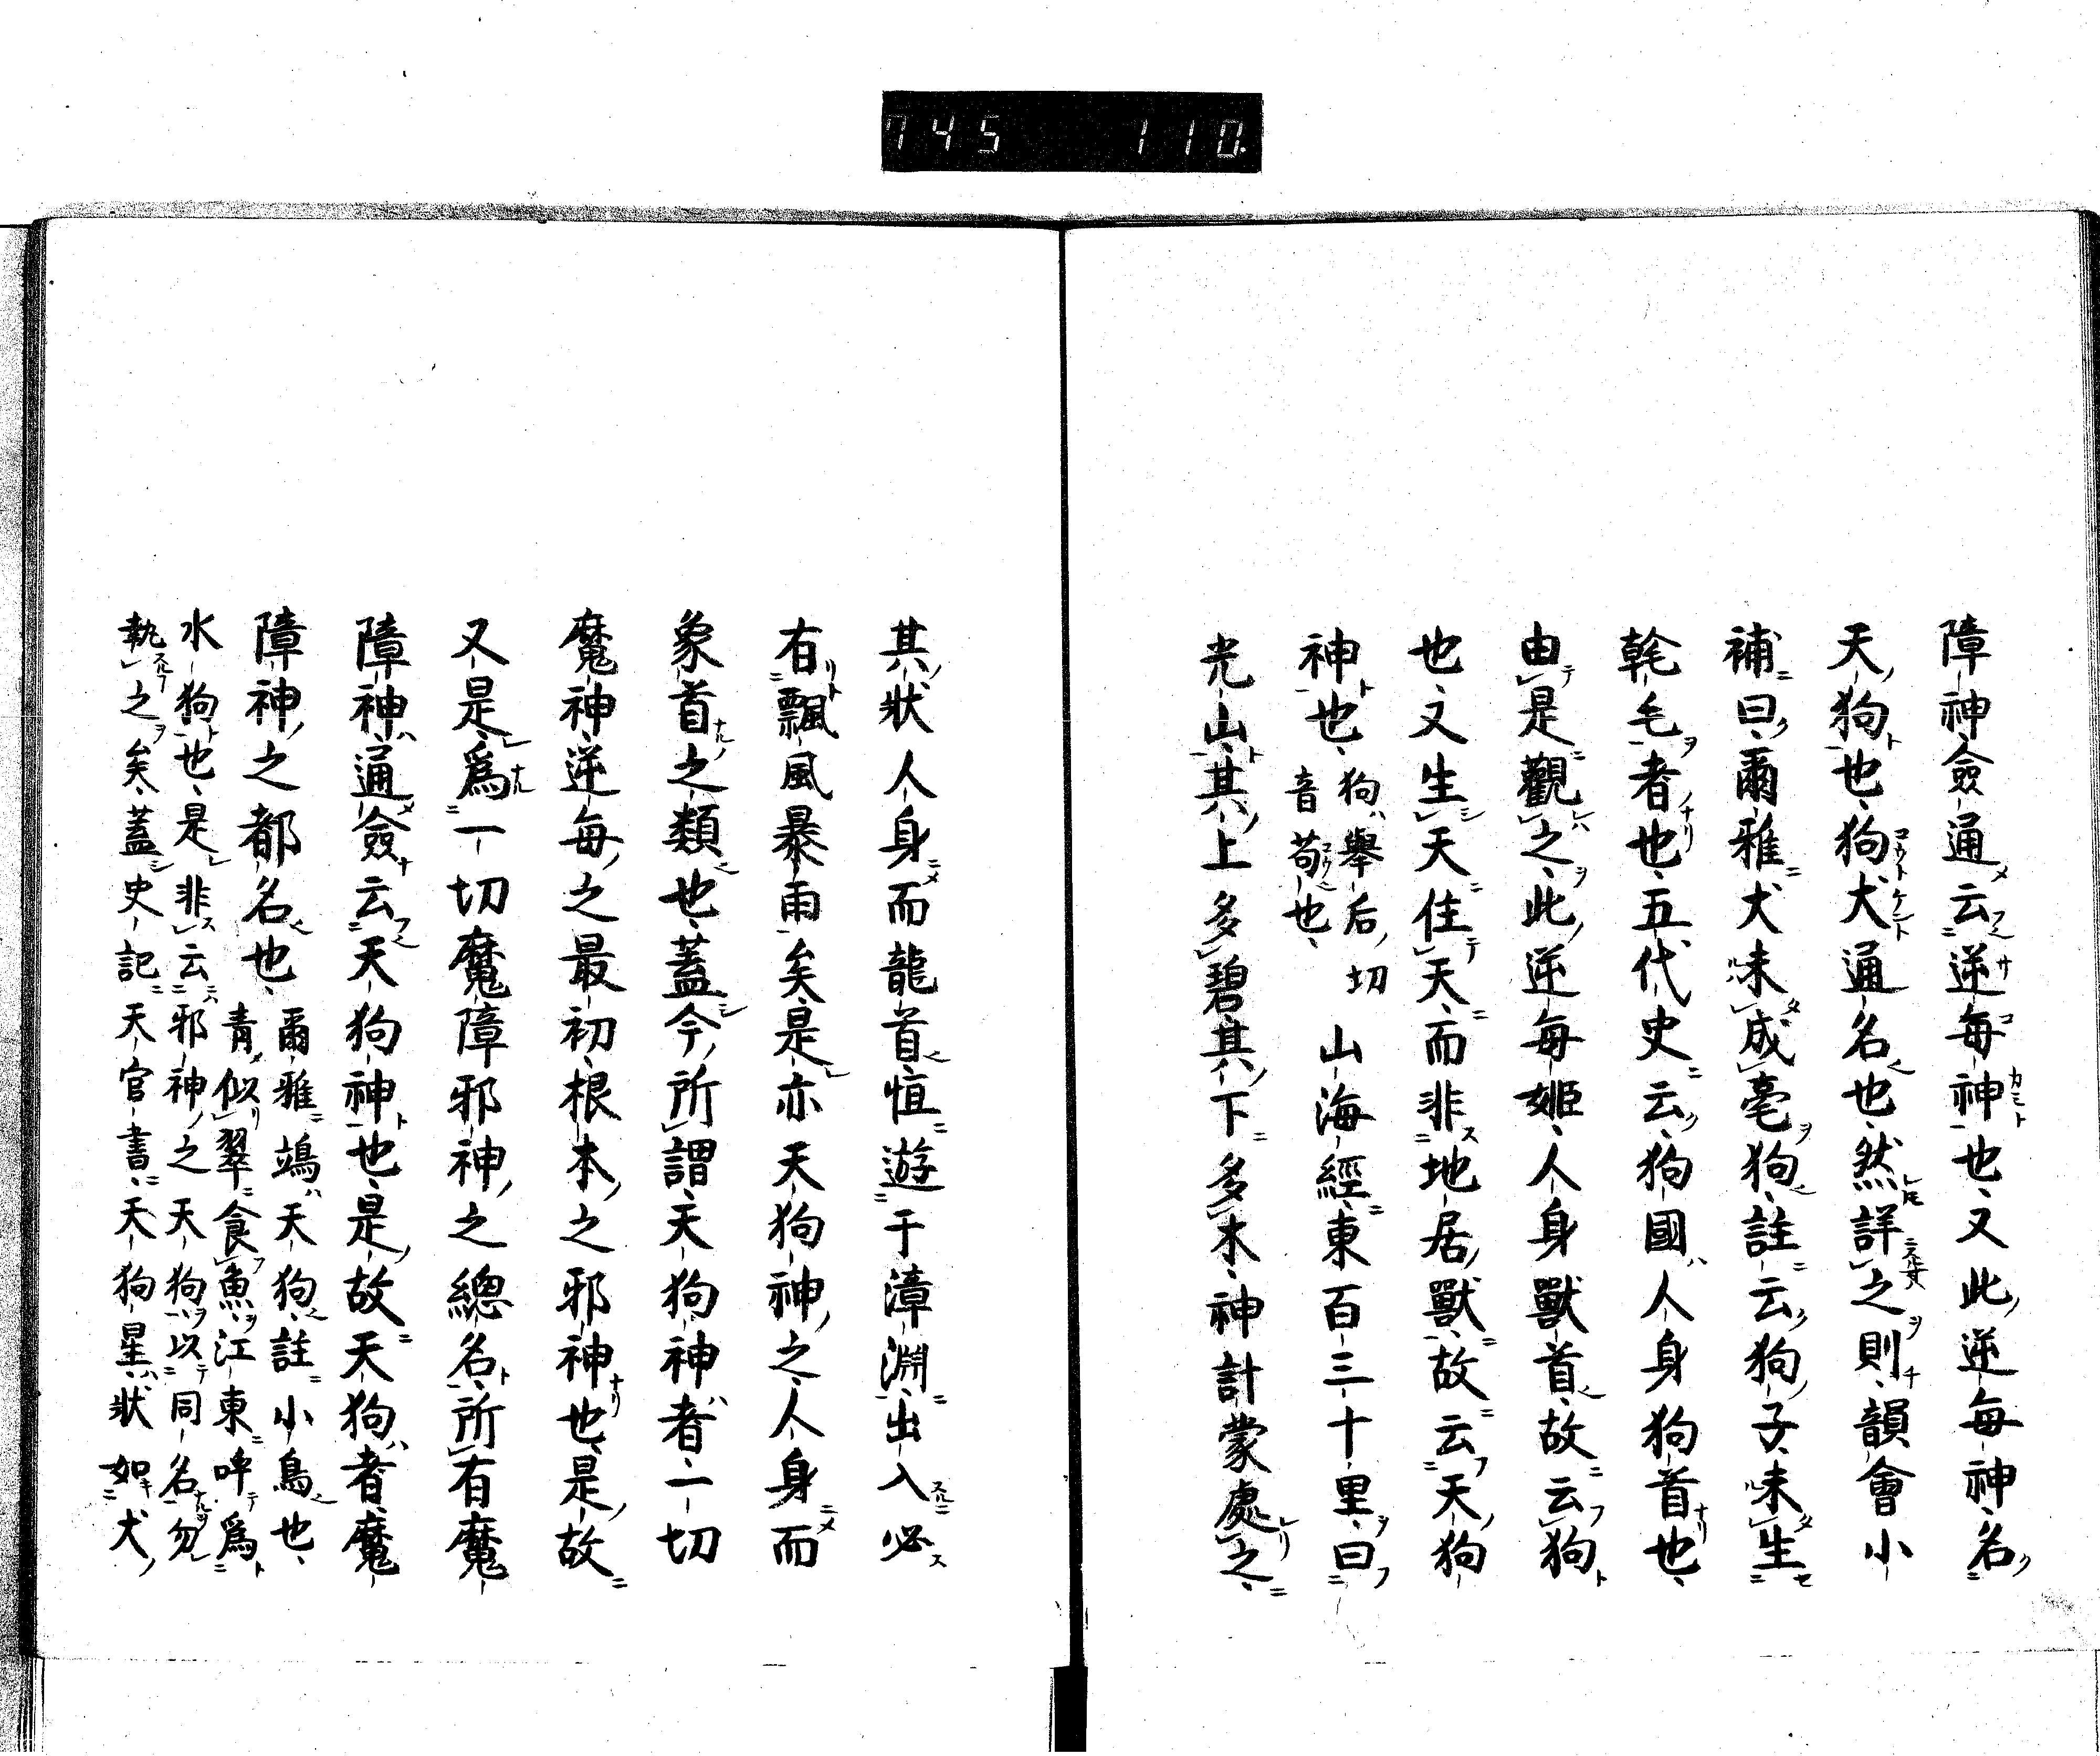 745 110
障神僉通云逆每神也又此逆每神名
天狗也狗犬通名也然詳之則韻會小
補曰爾雅犬未成毫狗註云狗子未生
毛者也五代史云狗國人身狗首也
由是觀之此逆每姬人身獸首故云狗
也又生天住天而非地居獸故云天狗
神也狗舉后切
音苟也
山海經東百三十里曰
光山其上多碧其下多木神計蒙處之
其狀人身而龍首恒遊于漳淵出入必
右飄風暴雨矣是亦天狗神之人身而
象首之類也蓋今所謂天狗神者一切
魔神逆每之最初根本之邪神也是故
又是爲一切魔障邪神之總名所有魔
障神通僉云天狗神也是故天狗者魔
障神之都名也
爾雅鴗天狗註小鳥也
青似翠食魚江東呼爲
水狗也是非云邪神之天狗以同名勿
執之矣蓋史記天官書天狗星狀如犬